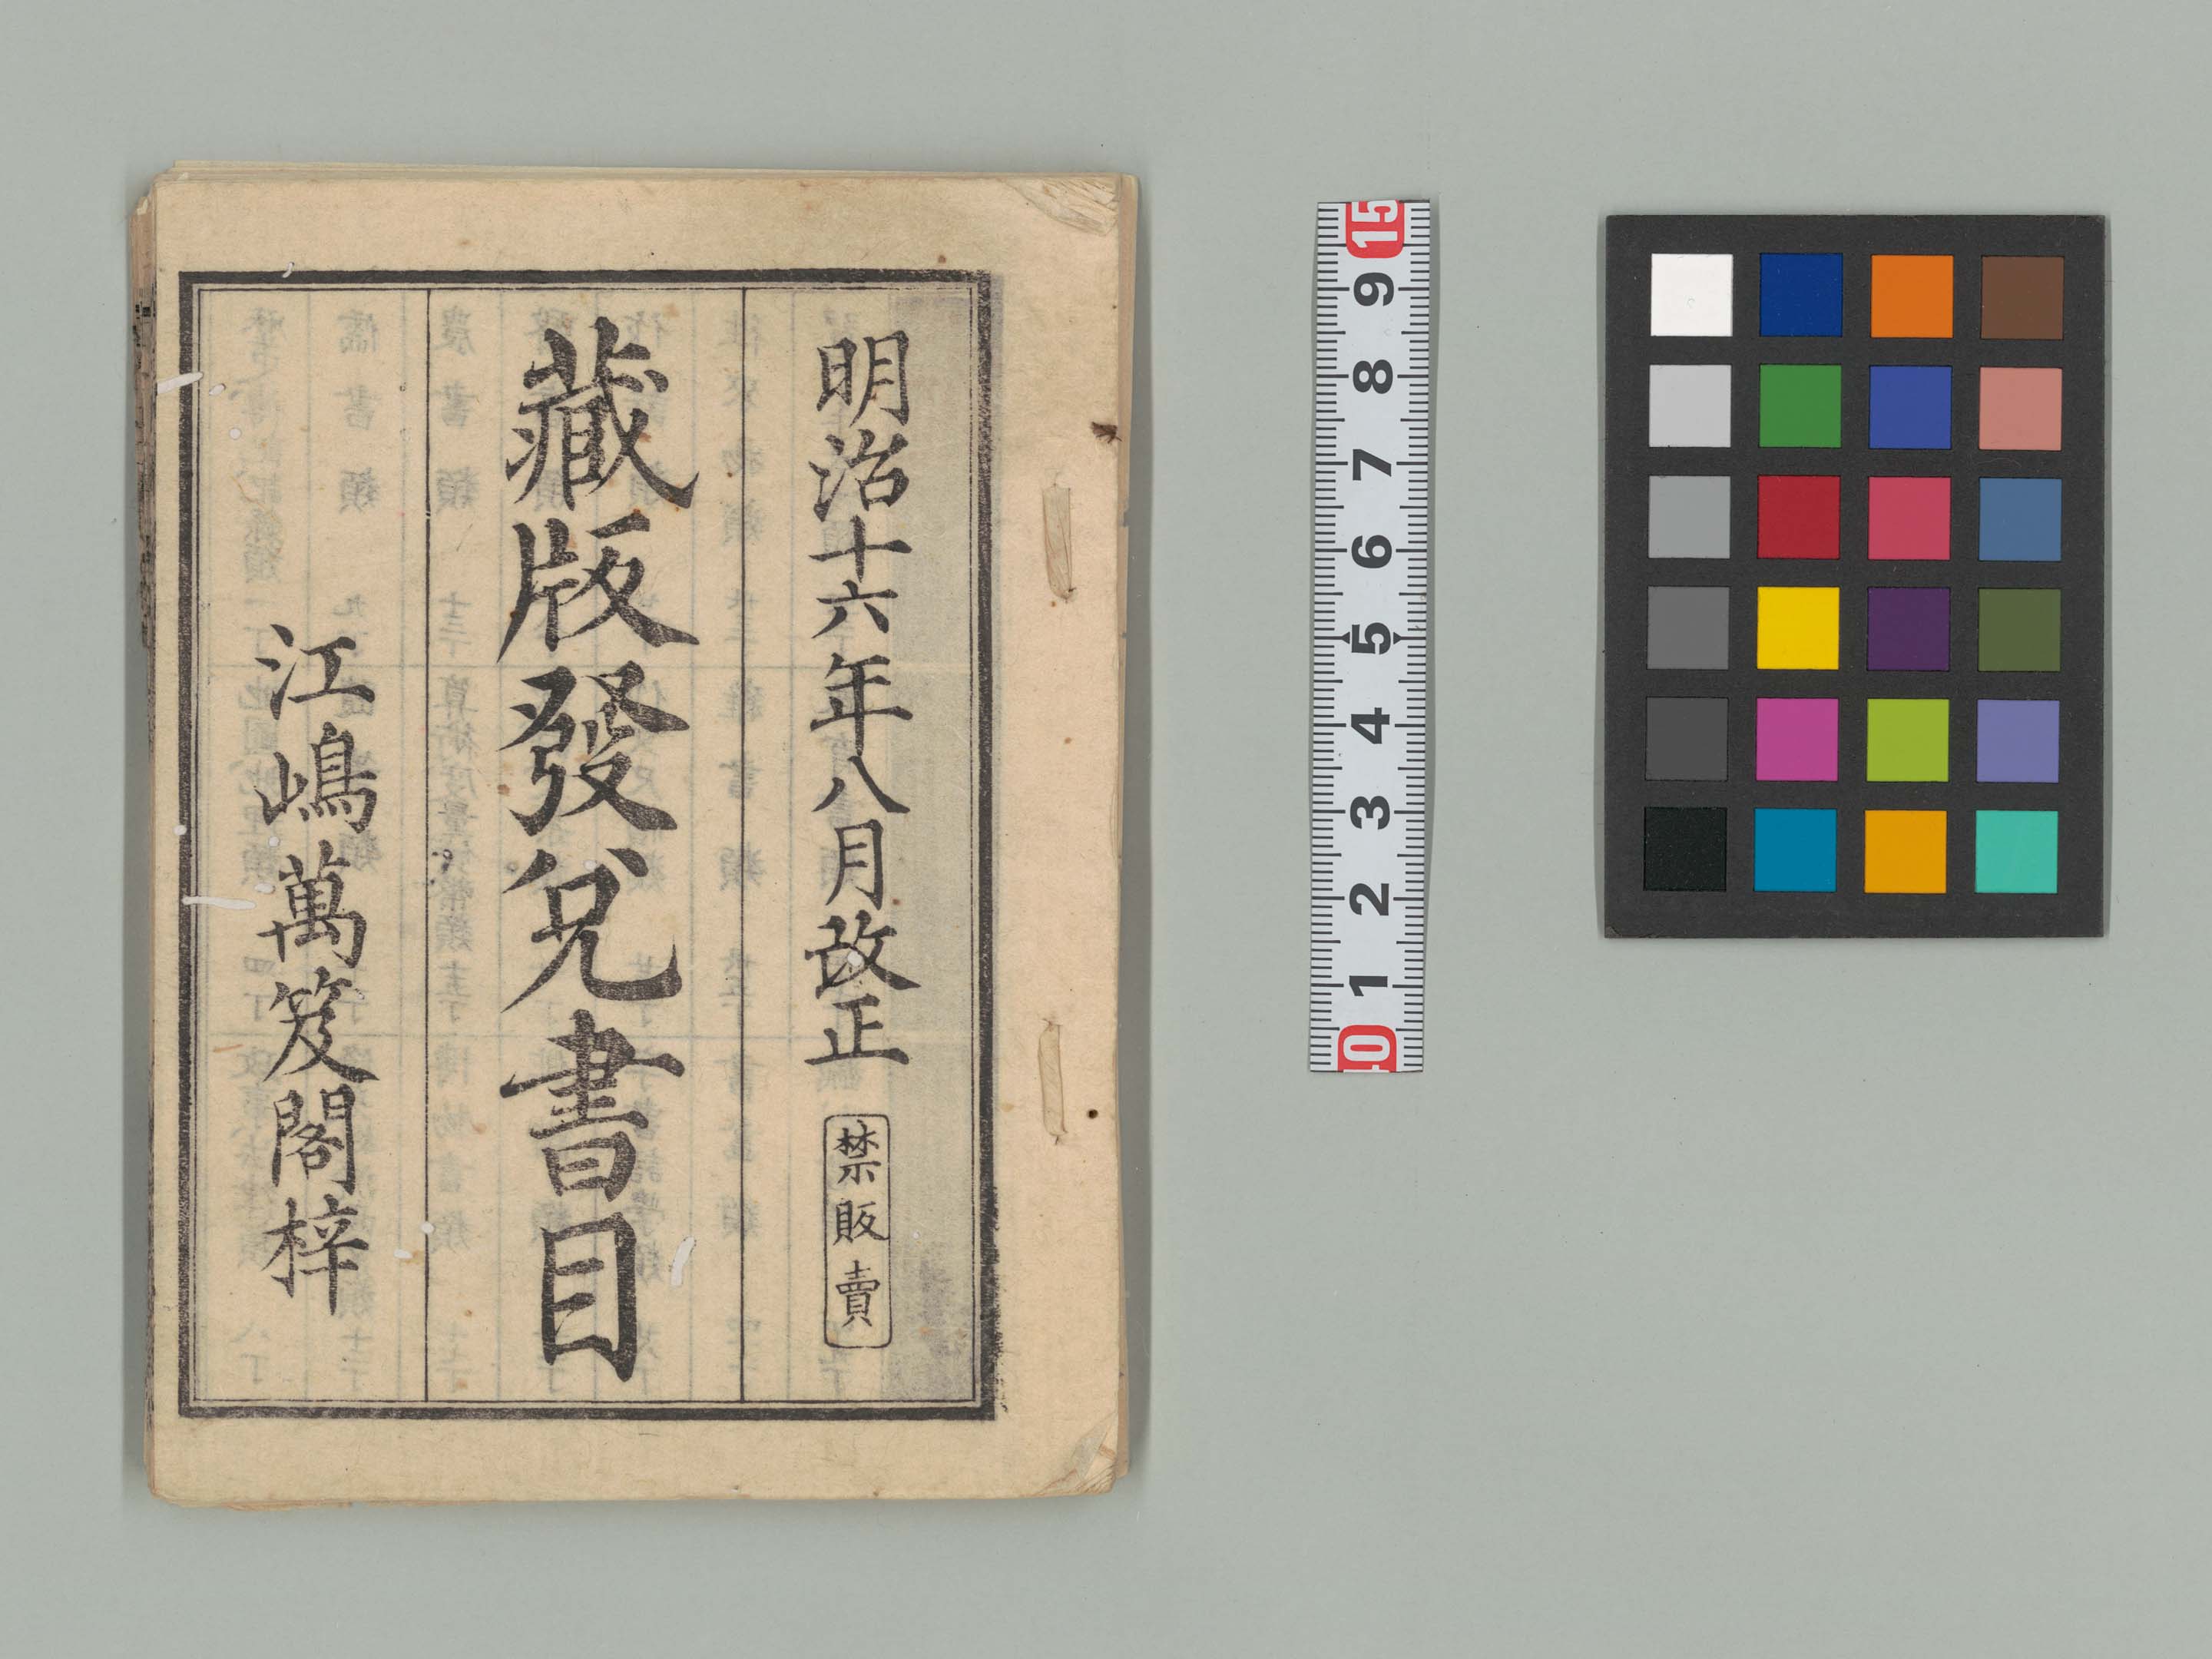 明治十六年八月改正
禁販賣
藏版發兌書目
江嶋萬笈閣梓
15
9
8
7
6
5
4
3
2
1
10